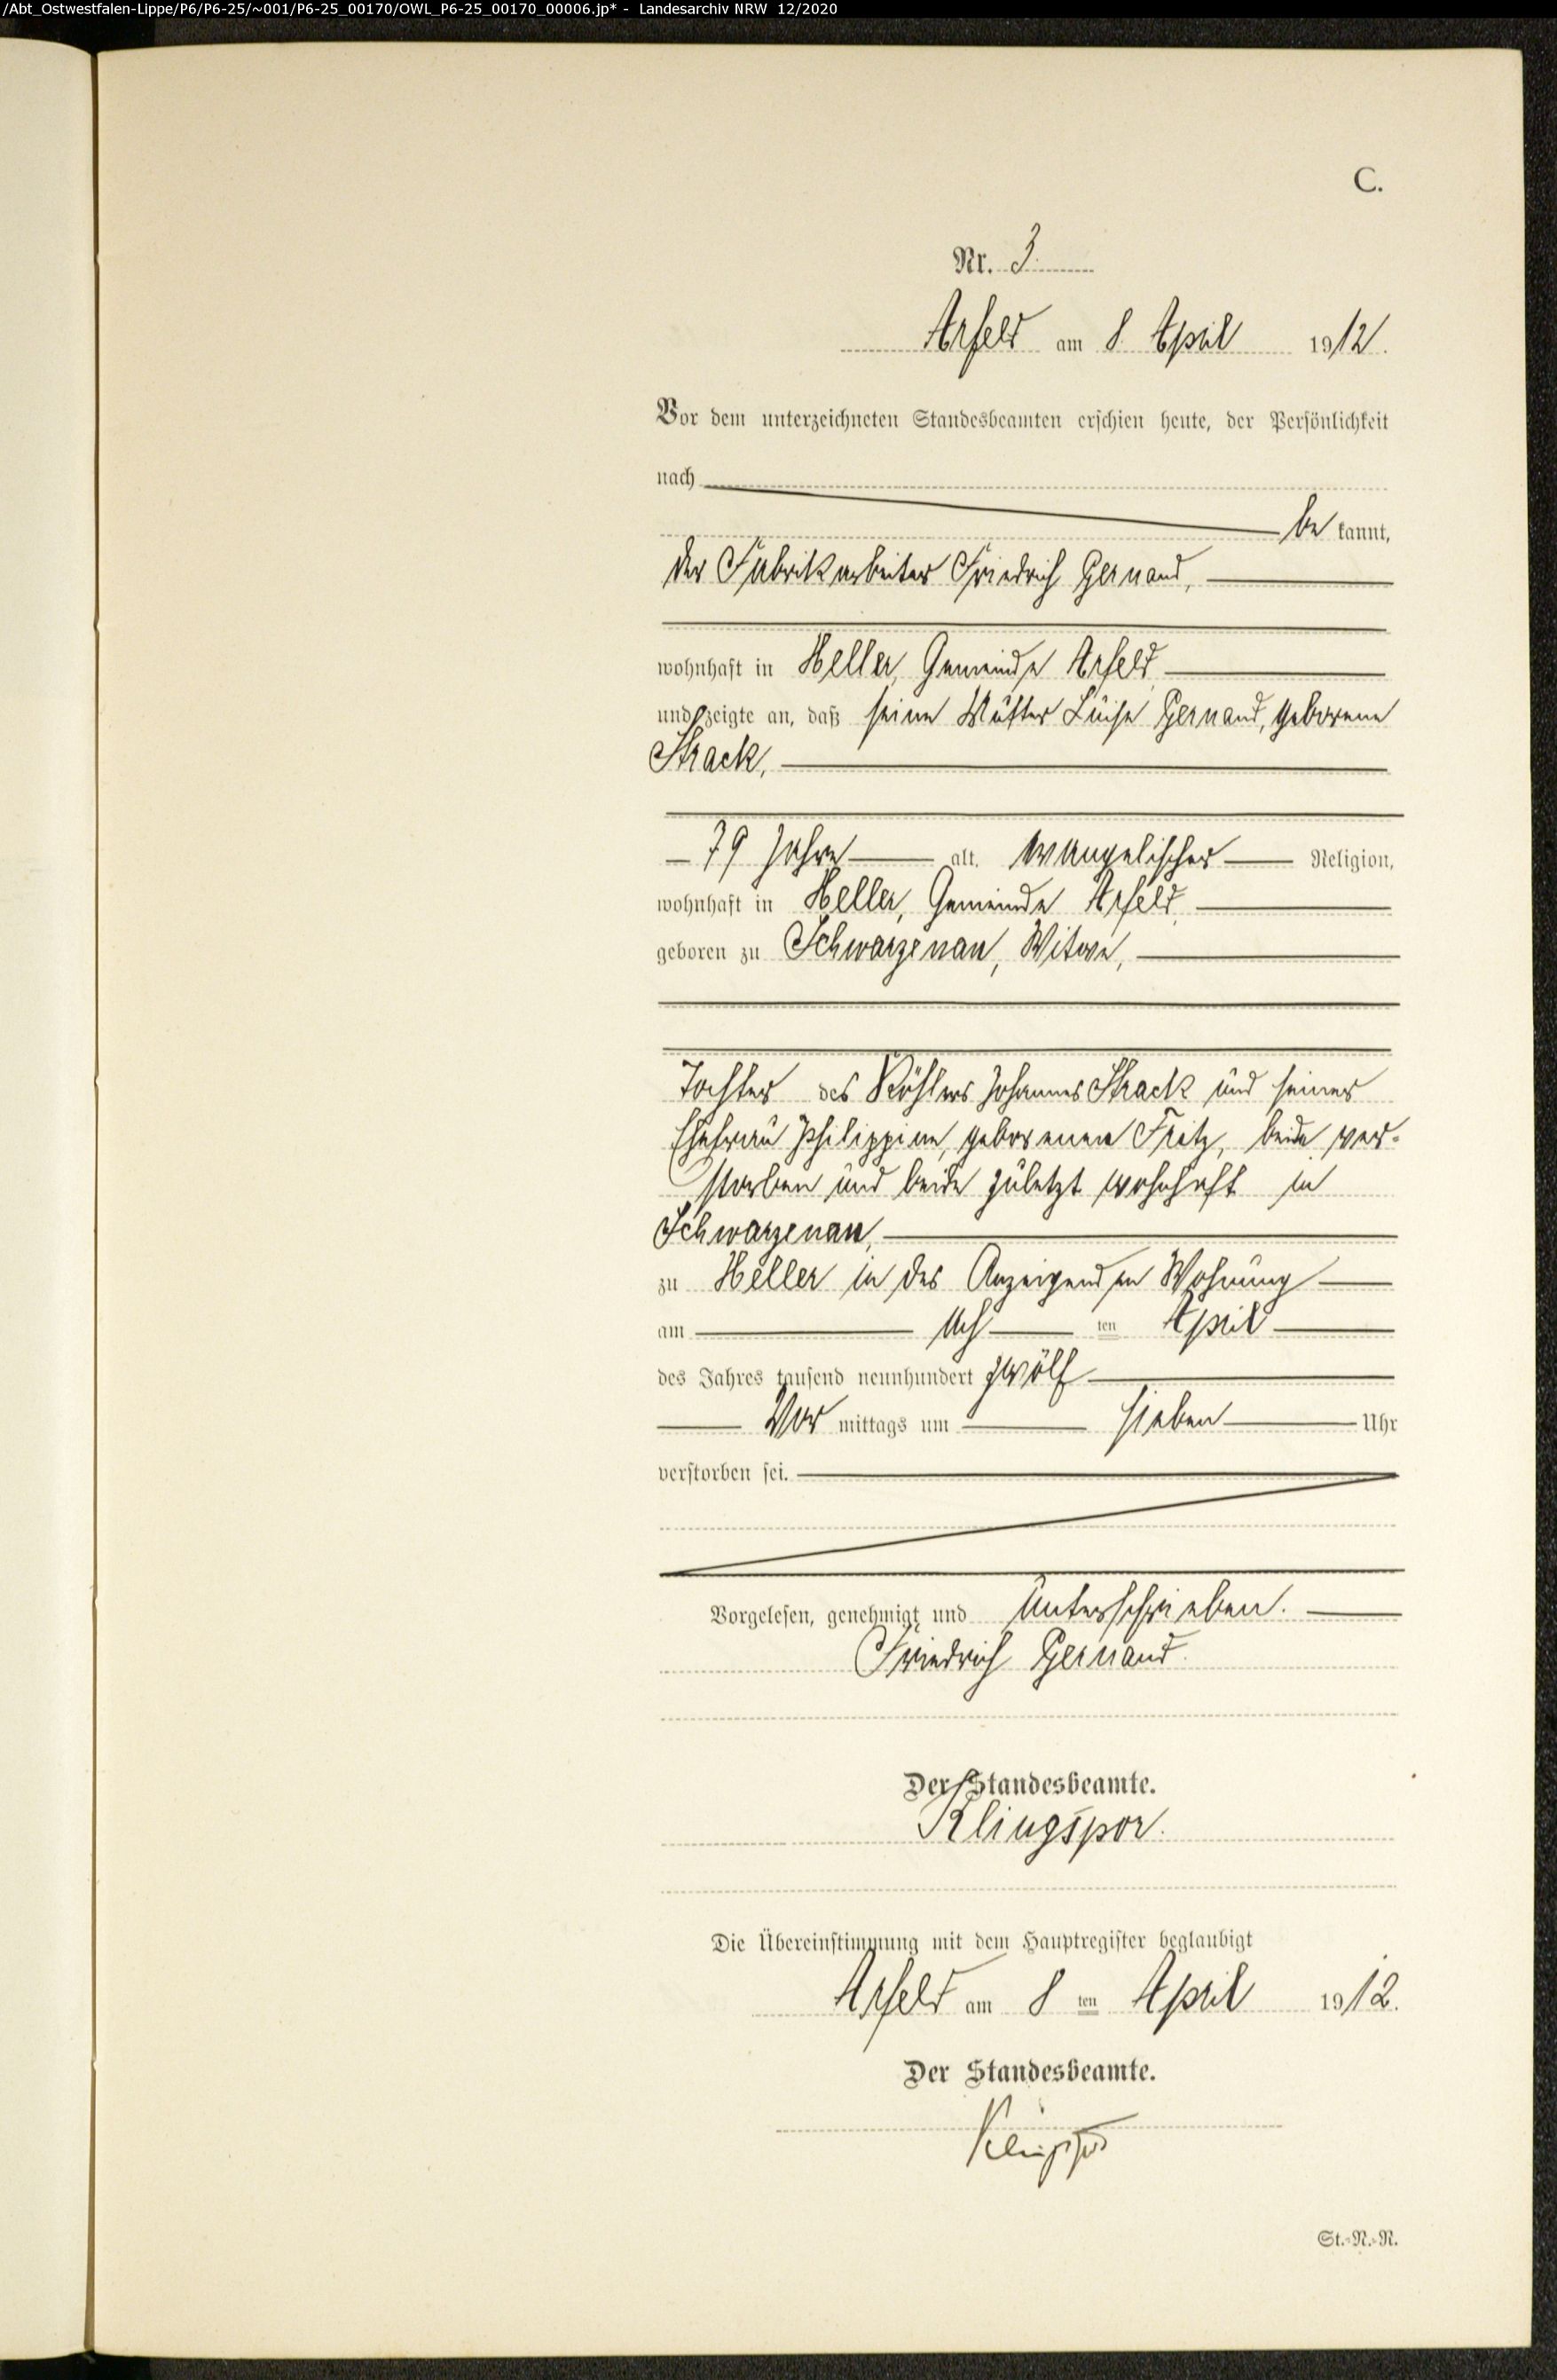 /Abt_Ostwestfalen-Lippe/P6/P6-25/~001/P6-25_00170/OWL_P6-25_00170_00006.jp* - Landesarchiv NRW 12/2020
C.
Nr. 3.
Arfeld am 8. April 1912.
Vor dem unterzeichneten Standesbeamten erschien heute, der Persönlichkeit
nach
be kannt,
der Fabrikarbeiter Friedrich Gernand,
wohnhaft in Heller, Gemeinde Arfeld,
und zeigte an, daß seine Mutter Luise Gernand, geborene
Strack,
79 Jahre alt, evangelischer Religion,
wohnhaft in Heller, Gemeinde Arfeld,
geboren zu Schwarzenau, Witwe,
Tochter des Köhlers Johannes Strack und seiner
Ehefrau Philippine, geborenen Fritz, beide ver-
storben und beide zuletzt wohnhaft in
Schwarzenau,
zu Heller in des Anzeigenden Wohnung
am ach ten April
des Jahres tausend neunhundert zwölf
Vor mittags um sieben Uhr
verstorben sei.
Vorgelesen, genehmigt und unterschrieben.
Friedrich Gernand.
Der Standesbeamte.
Klingspor.
Die Übereinstimmung mit dem Hauptregister beglaubigt
Arfeld am 8 ten April 1912.
Der Standesbeamte.
Klingspor
St.-N.-R.